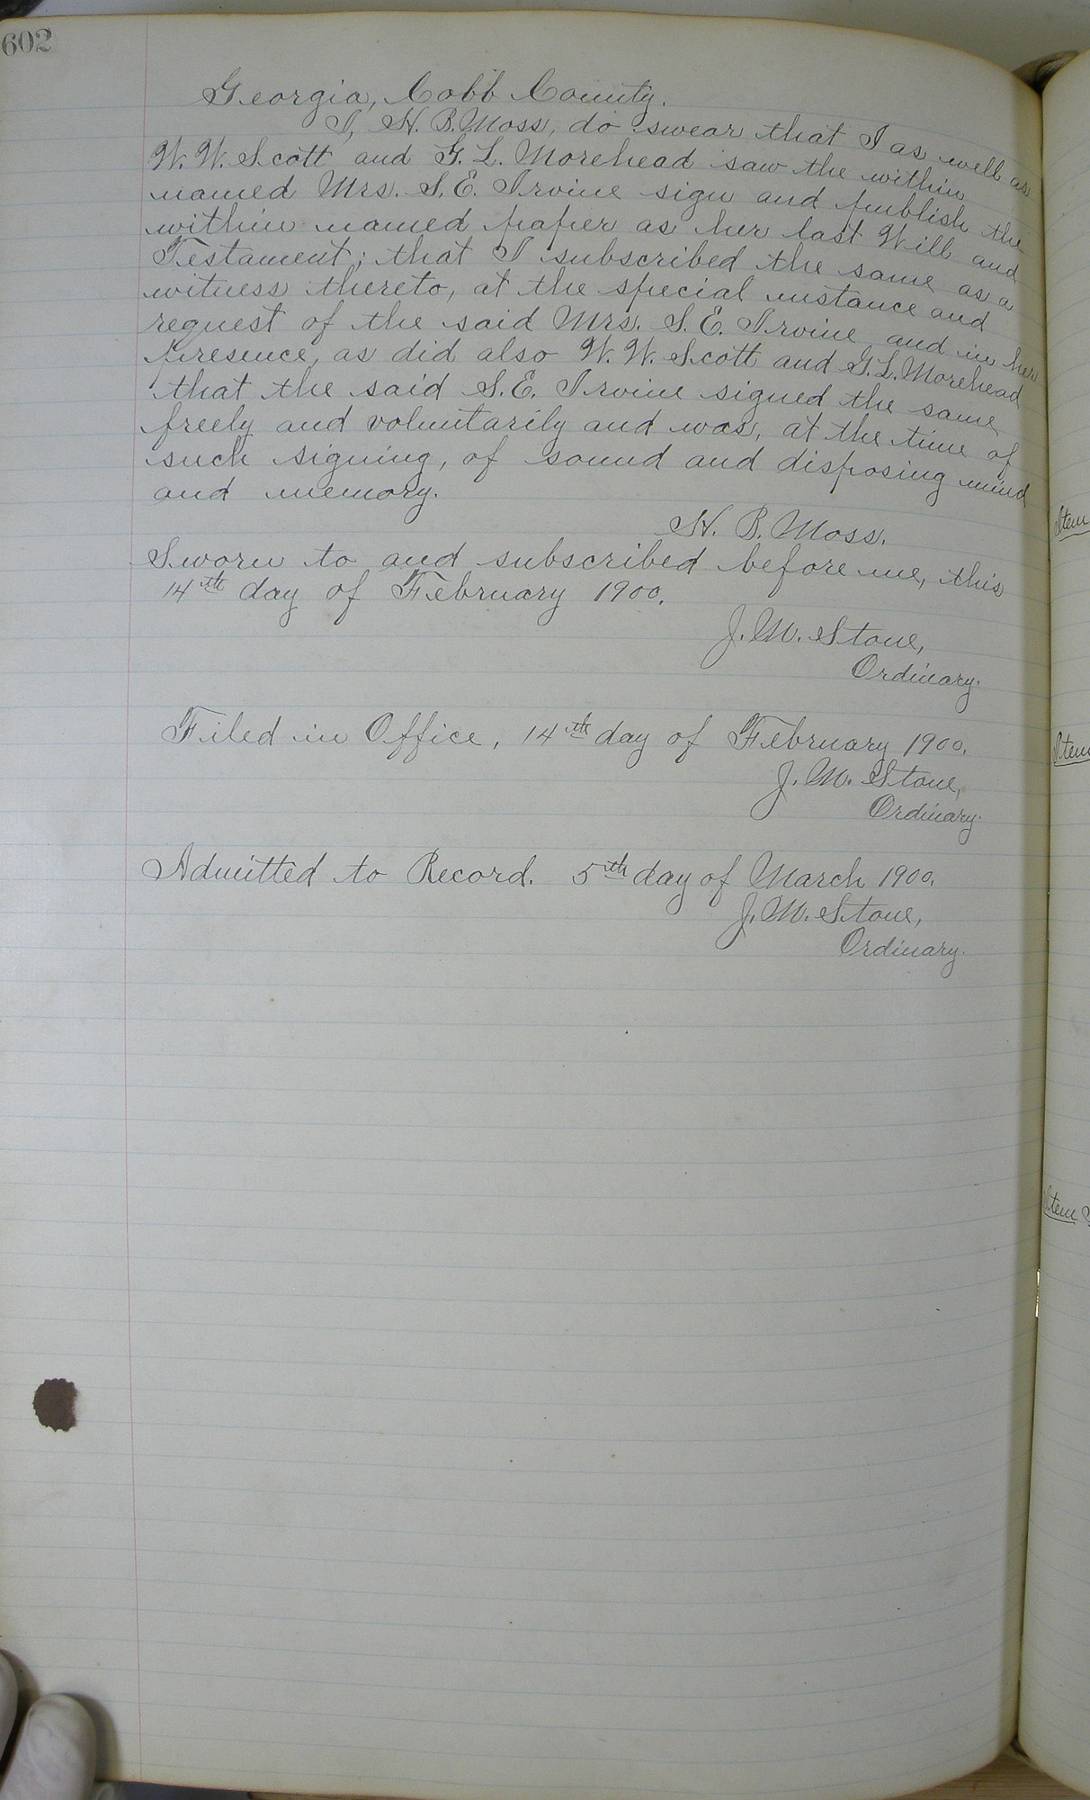 602
Georgia, Cobb County.
I, H. B. Moss, do swear that I as well as
W. W. Scott and G. L. Morehead saw the within
named Mrs. S. E. Irvine sign and publish the
within named paper as her last Will and
Testament; that I subscribed the same as a
witness thereto, at the special instance and
request of the said Mrs. S. E. Irvine and in her
presence, as did also W. W. Scott and G. L. Morehead
that the said S. E. Irvine signed the same
freely and voluntarily and was, at the time of
such signing, of sound and disposing mind
and memory.
H. B. Moss.
Sworn to and subscribed before me, this
14th day of February 1900.
J. M. Stone,
Ordinary.
Filed in Office, 14th day of February 1900.
J. M. Stone,
Ordinary.
Admitted to Record. 5th day of March 1900.
J. M. Stone,
Ordinary.
Item
Item
Item